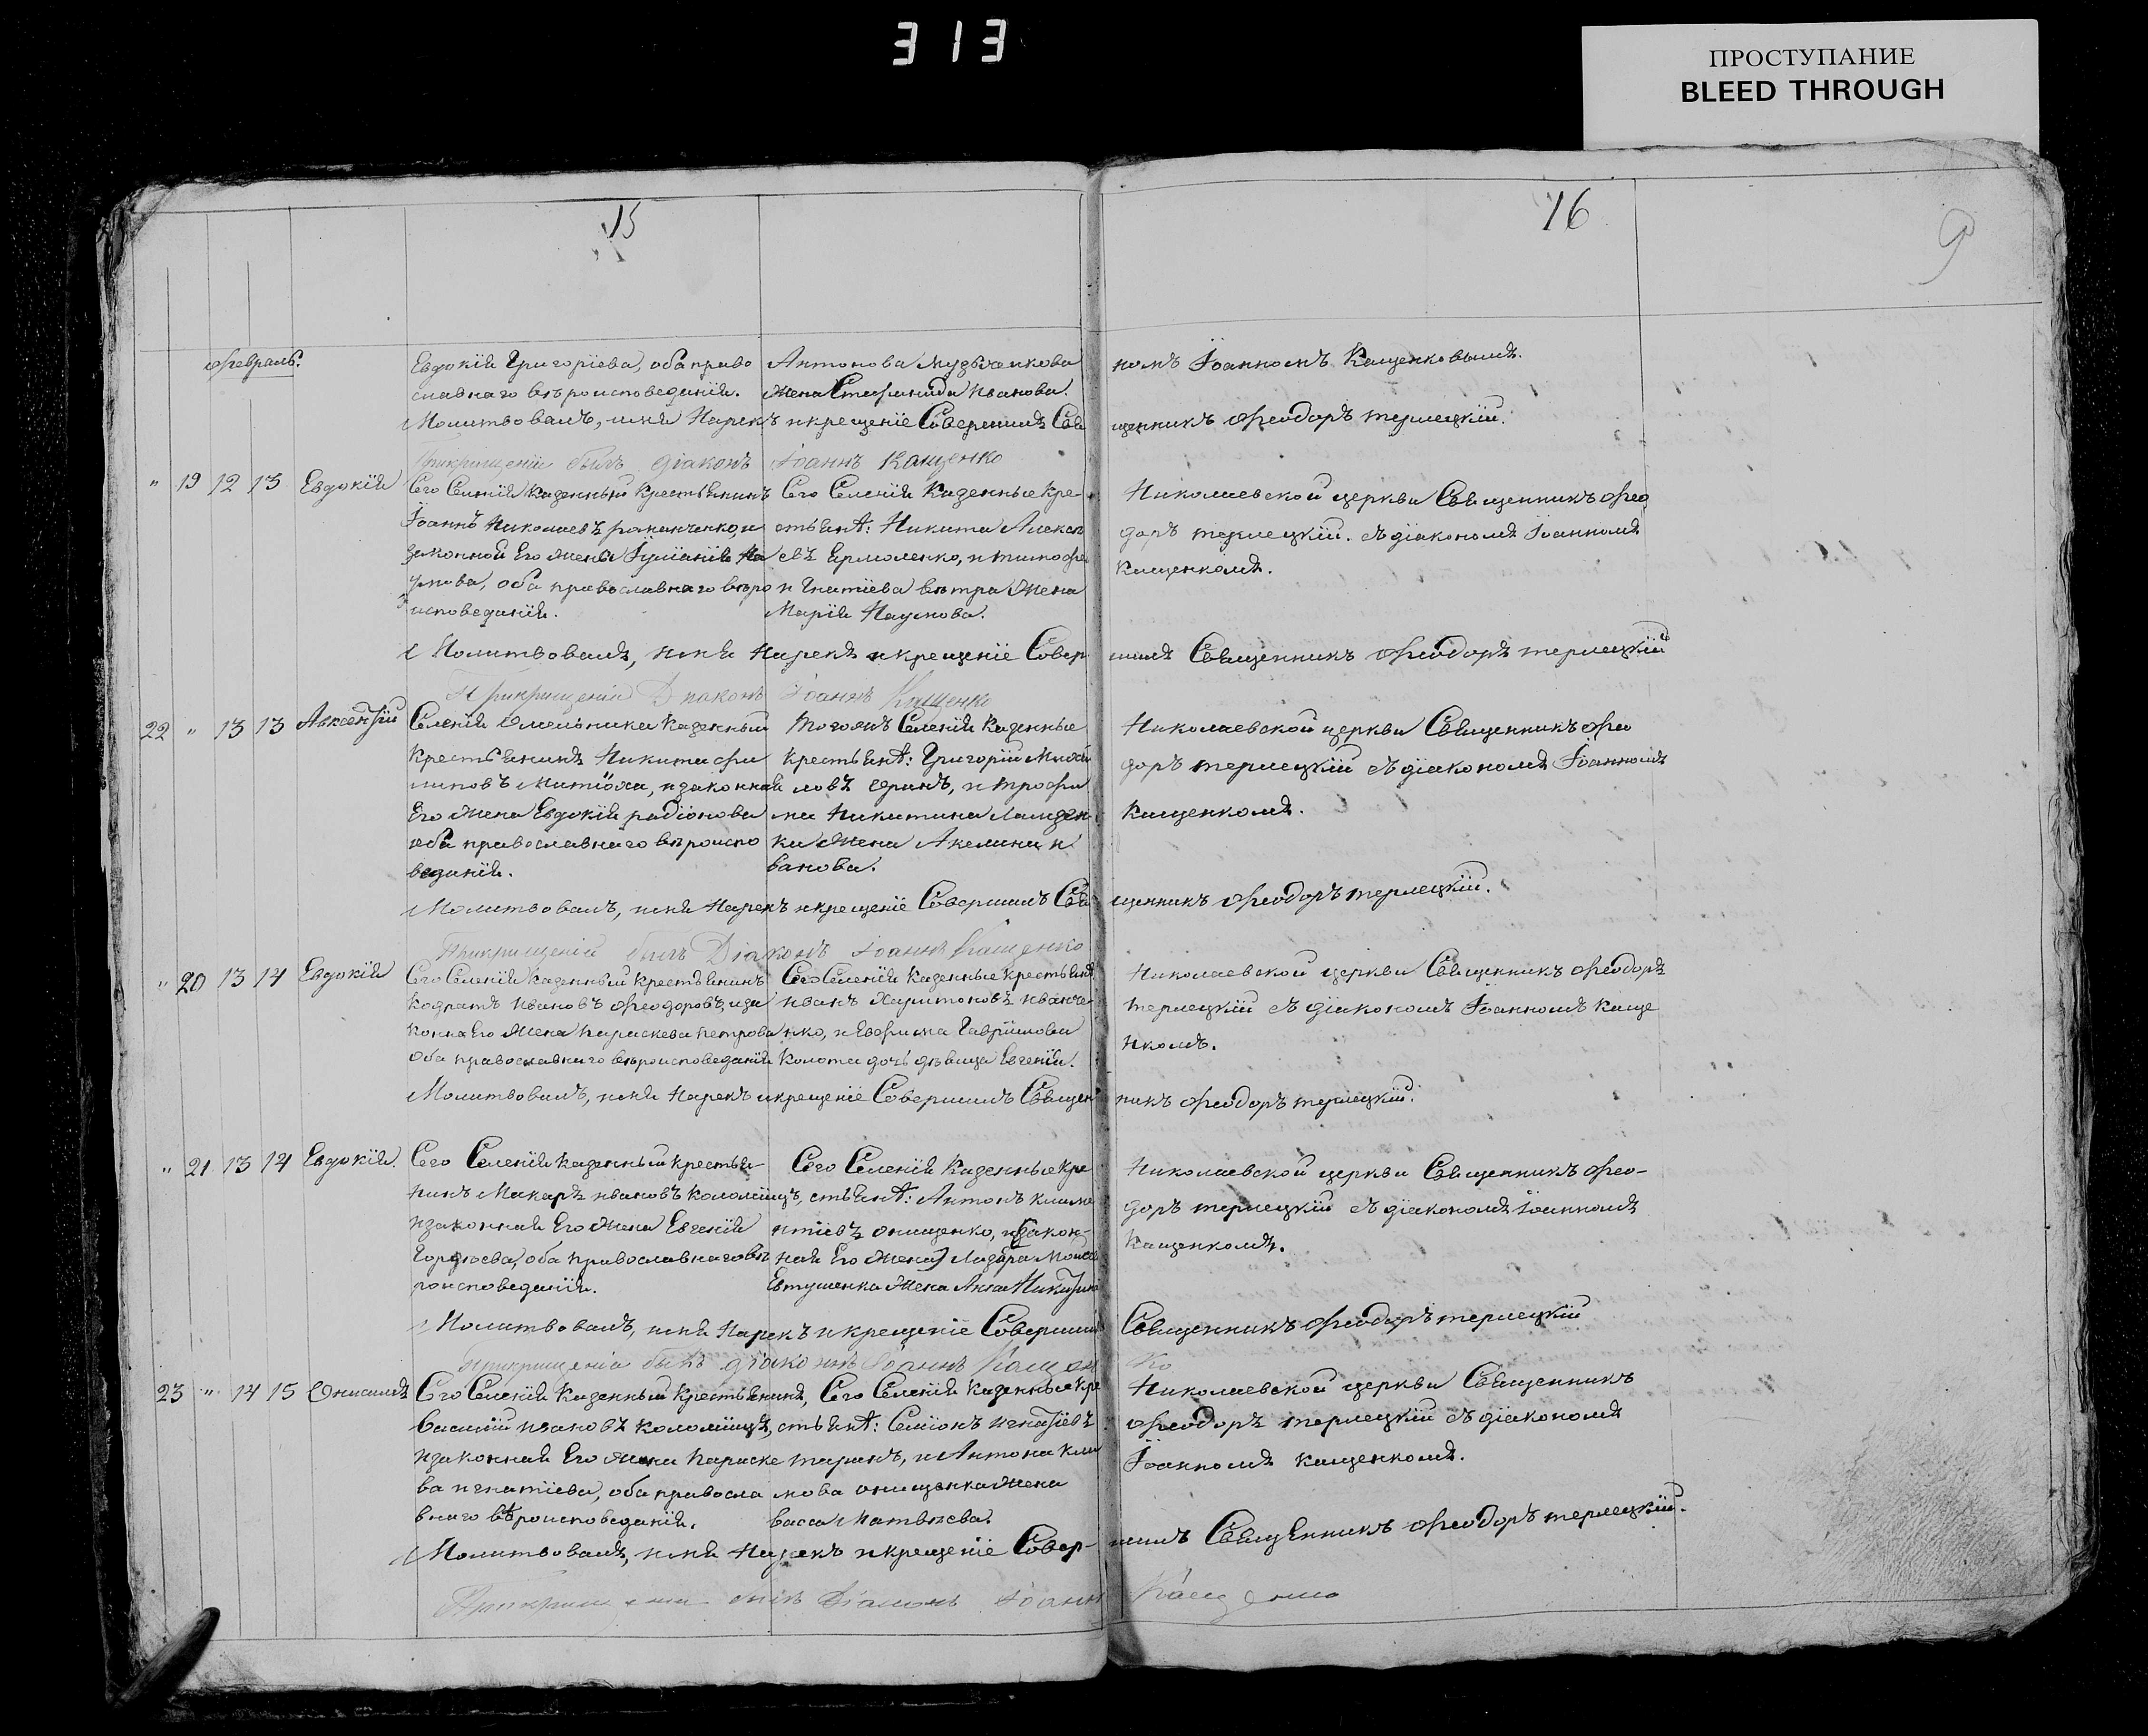 313
ПРОСТУПАНИЕ
BLEED THROUGH
15
16
9
Февраль.
Евдокія Григоріева, оба право
славнаго вѣроисповеданія.
Антонова Музыченкова
жена Стефанида Иванова.
номъ Іоанномъ Кащенковымъ.
Молитвовалъ, имя Нарекъ и крещеніе Совершилъ Свя
щенникъ Феодоръ терлецкій.
При крищеніи былъ діаконъ Іоаннъ Кащенко
" 19 12 13 Евдокія
Сего Селенія Казенный Крестьянинъ
Іоаннъ Николаевъ
законная Его жена Іуліанія На
умова, оба православнаго вѣро
исповеданія.
Сего Селенія Казенные Кре
стьянѣ: Никита Алексѣ
евъ Ермоленко, и тимофея
Игнатіева вѣтра жена
Марія Наумова.
Николаевской церкви Священникъ Фео
доръ терлецкій. съ діакономъ Іоанномъ
Кащенкомъ.
Молитвовалъ, имя Нарекъ и крещеніе Совер
шилъ Священникъ Феодоръ терлецкій
При крищеніи Діаконъ Іоаннъ Кащенко
22 " 13 13 Авксентій
Селенія Омельника Казенный
Крестьянинъ Никита Фи
липовъ Митюха, и законная
Его жена Евдокія радіонова
оба православнаго вѣроиспо
веданія.
Тогожъ Селенія Казенные
Крестьянѣ: Григорій Михай
ловъ, и трофи
ма Никитина
ка жена Акелина И
ванова.
Николаевской церкви Священникъ Фео
доръ терлецкій съ діакономъ Іоанномъ
Кащенкомъ.
Молитвовалъ, имя Нарекъ и крещеніе Совершилъ Свя
щенникъ Феодоръ терлецкій.
При крищеніи былъ Діаконъ Іоаннъ Кащенко
" 20 13 14 Евдокія
Сего Селенія Казенный Крестьянинъ
Кодратъ Ивановъ Феодоровъ, и за
конная Его жена Параскева Петрова
оба православнаго вѣроисповеданія
Сего Селенія Казенные Крестьянѣ
Иванъ Харитоновъ Иванче
нко, и Евфима Гавріилова
Колота дочь дѣвица Евгенія.
Николаевской церкви Священникъ Феодоръ
терлецкій съ діакономъ Іоанномъ Каще
нкомъ.
Молитвовалъ, имя Нарекъ и крещеніе Совершилъ Священ
никъ Феодоръ терлецкій.
" 21 13 14 Евдокія.
Сего Селенія Казенный Крестья-
нинъ Макаръ Ивановъ Коломіицъ,
и законная Его жена Евгенія
Гордѣева, оба православнаго вѣ
роисповеданія.
Сего Селенія Казенные Кре
стьянѣ: Антонъ Климе
нтіевъ онищенко, и (закон-
ная Его жена) Лазара Моисе
Евтушенка жена Анна Никитина
Николаевской церкви Священникъ Фео-
доръ терлецкій съ діакономъ Іоанномъ
Кащенкомъ.
Молитвовалъ, имя Нарекъ и крещеніе Совершилъ
Священникъ Феодоръ терлецкій
При крищеніи былъ діаконъ Іоаннъ Кащен
ко
23 " 14 15 Онисимъ
Сего Селенія Казенный Крестьянинъ,
Василій Ивановъ Коломіицъ,
и законная Его жена Параске
ва Игнатіева, оба правосла
внаго вѣроисповеданія.
Сего Селенія Казенные Кре
стьянѣ: Семіонъ Игнатіевъ
таранъ, и Антона Кли
мова онищенка жена
Васса Матвѣева.
Николаевской церкви Священникъ
Феодоръ терлецкій съ діакономъ
Іоанномъ Кащенкомъ.
Молитвовалъ, имя Нарекъ и крещеніе Совер-
шилъ Священникъ Феодоръ терлецкій.
При крищеніи былъ Діаконъ Іоаннъ
Кащенко